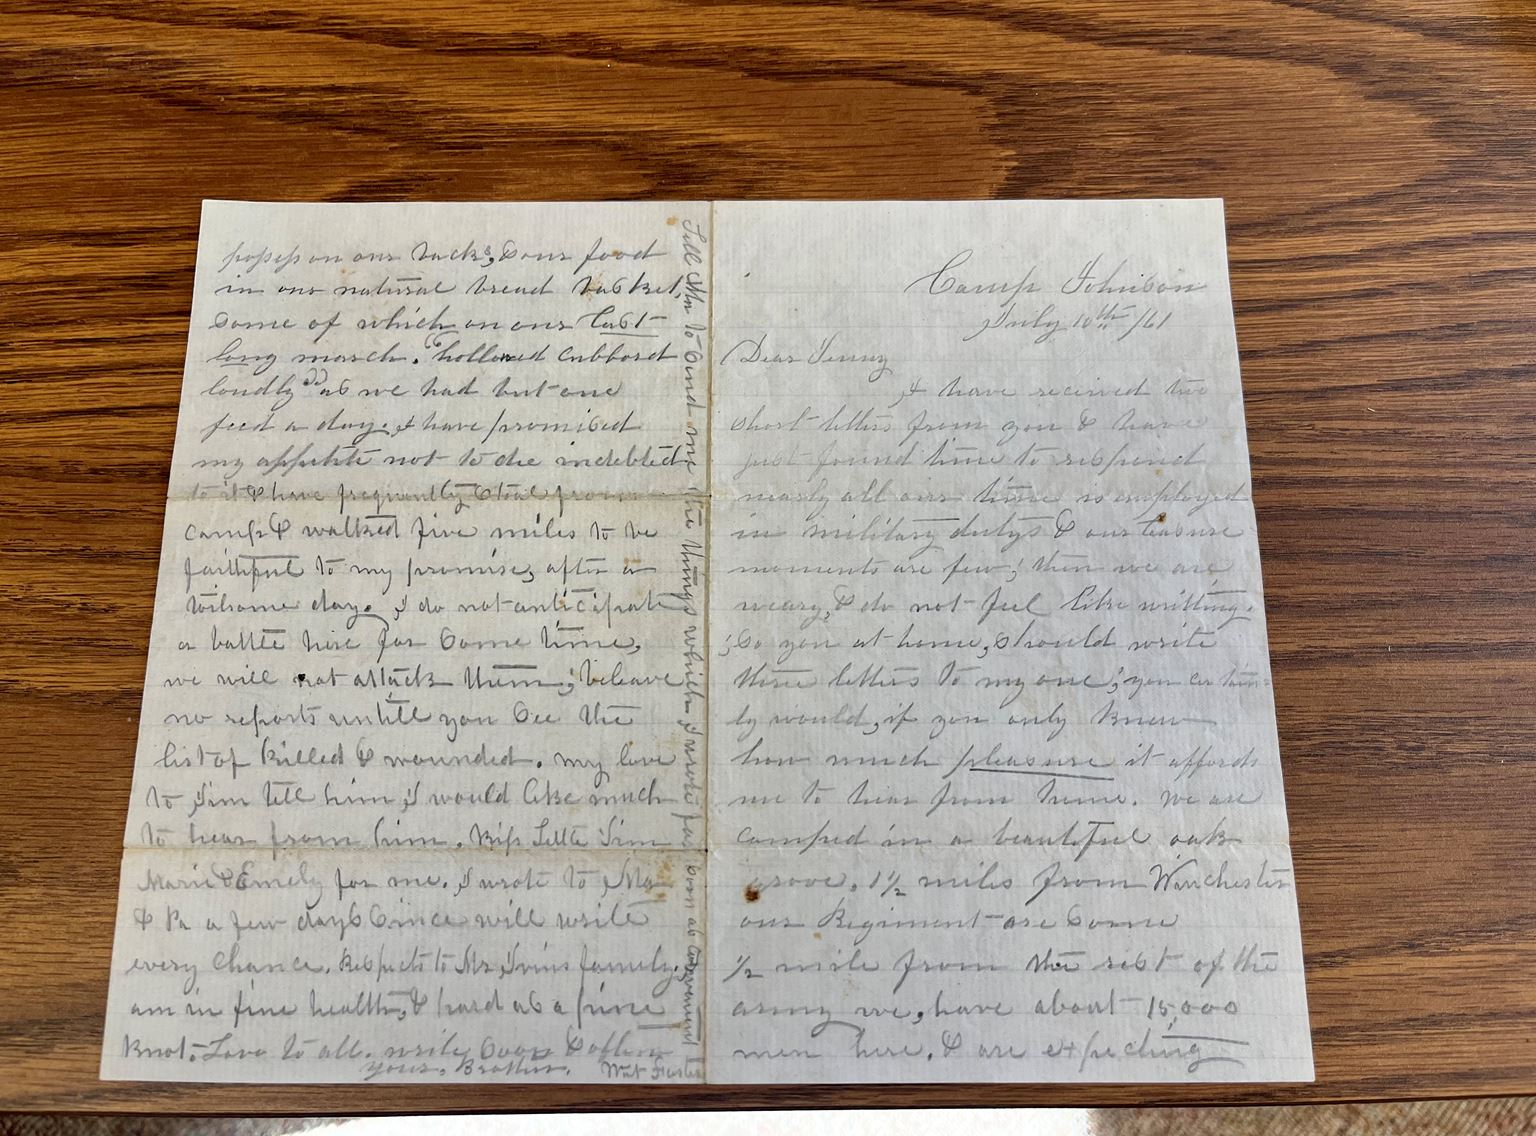 Camp Johnson
July 10th /61
Dear Jenny
I have received two
short letters from you & have
just found time to respond
nearly all our time is employed
in military dutys & our leasure
moments are few, then we are
weary, & do not feel like writting.
So you at home, should write
three letters to my one; you certain-
ly would, if you only knew
how much pleasure it affords
me to hear from home. We are
camped in a beautiful oak
grove. 1½ miles from Winchester
our Regiment are some
½ mile from the rest of the
army we, have about 15,000
men here. & are expecting
on our backs, & our food
in our natural bread basket,
some of which on our last
long march. "hollowed cubbord
loudly" as we had but one
feed a day. I have promised
my appetite not to die indebted
to it & have frequently stole from
camp & walked five miles to be
faithful to my promise, after a
toilsome day. I do not anticipate
a battle here for some time,
we will not attack them; beleave
no reports untill you see the
list of killed & wounded. my love
to Jim tell him, I would like much
to hear from him. Kiss Little Jim
Marie & Emely for me. I wrote to Ma
& Pa a few days since will write
every chance. Respects to Mr, family.
am in fine health, & hard as a pine
knot. Love to all. write soon & often
yours, Brother. Wat
Tell Ma to send me the things which I wrote for soon as convenient